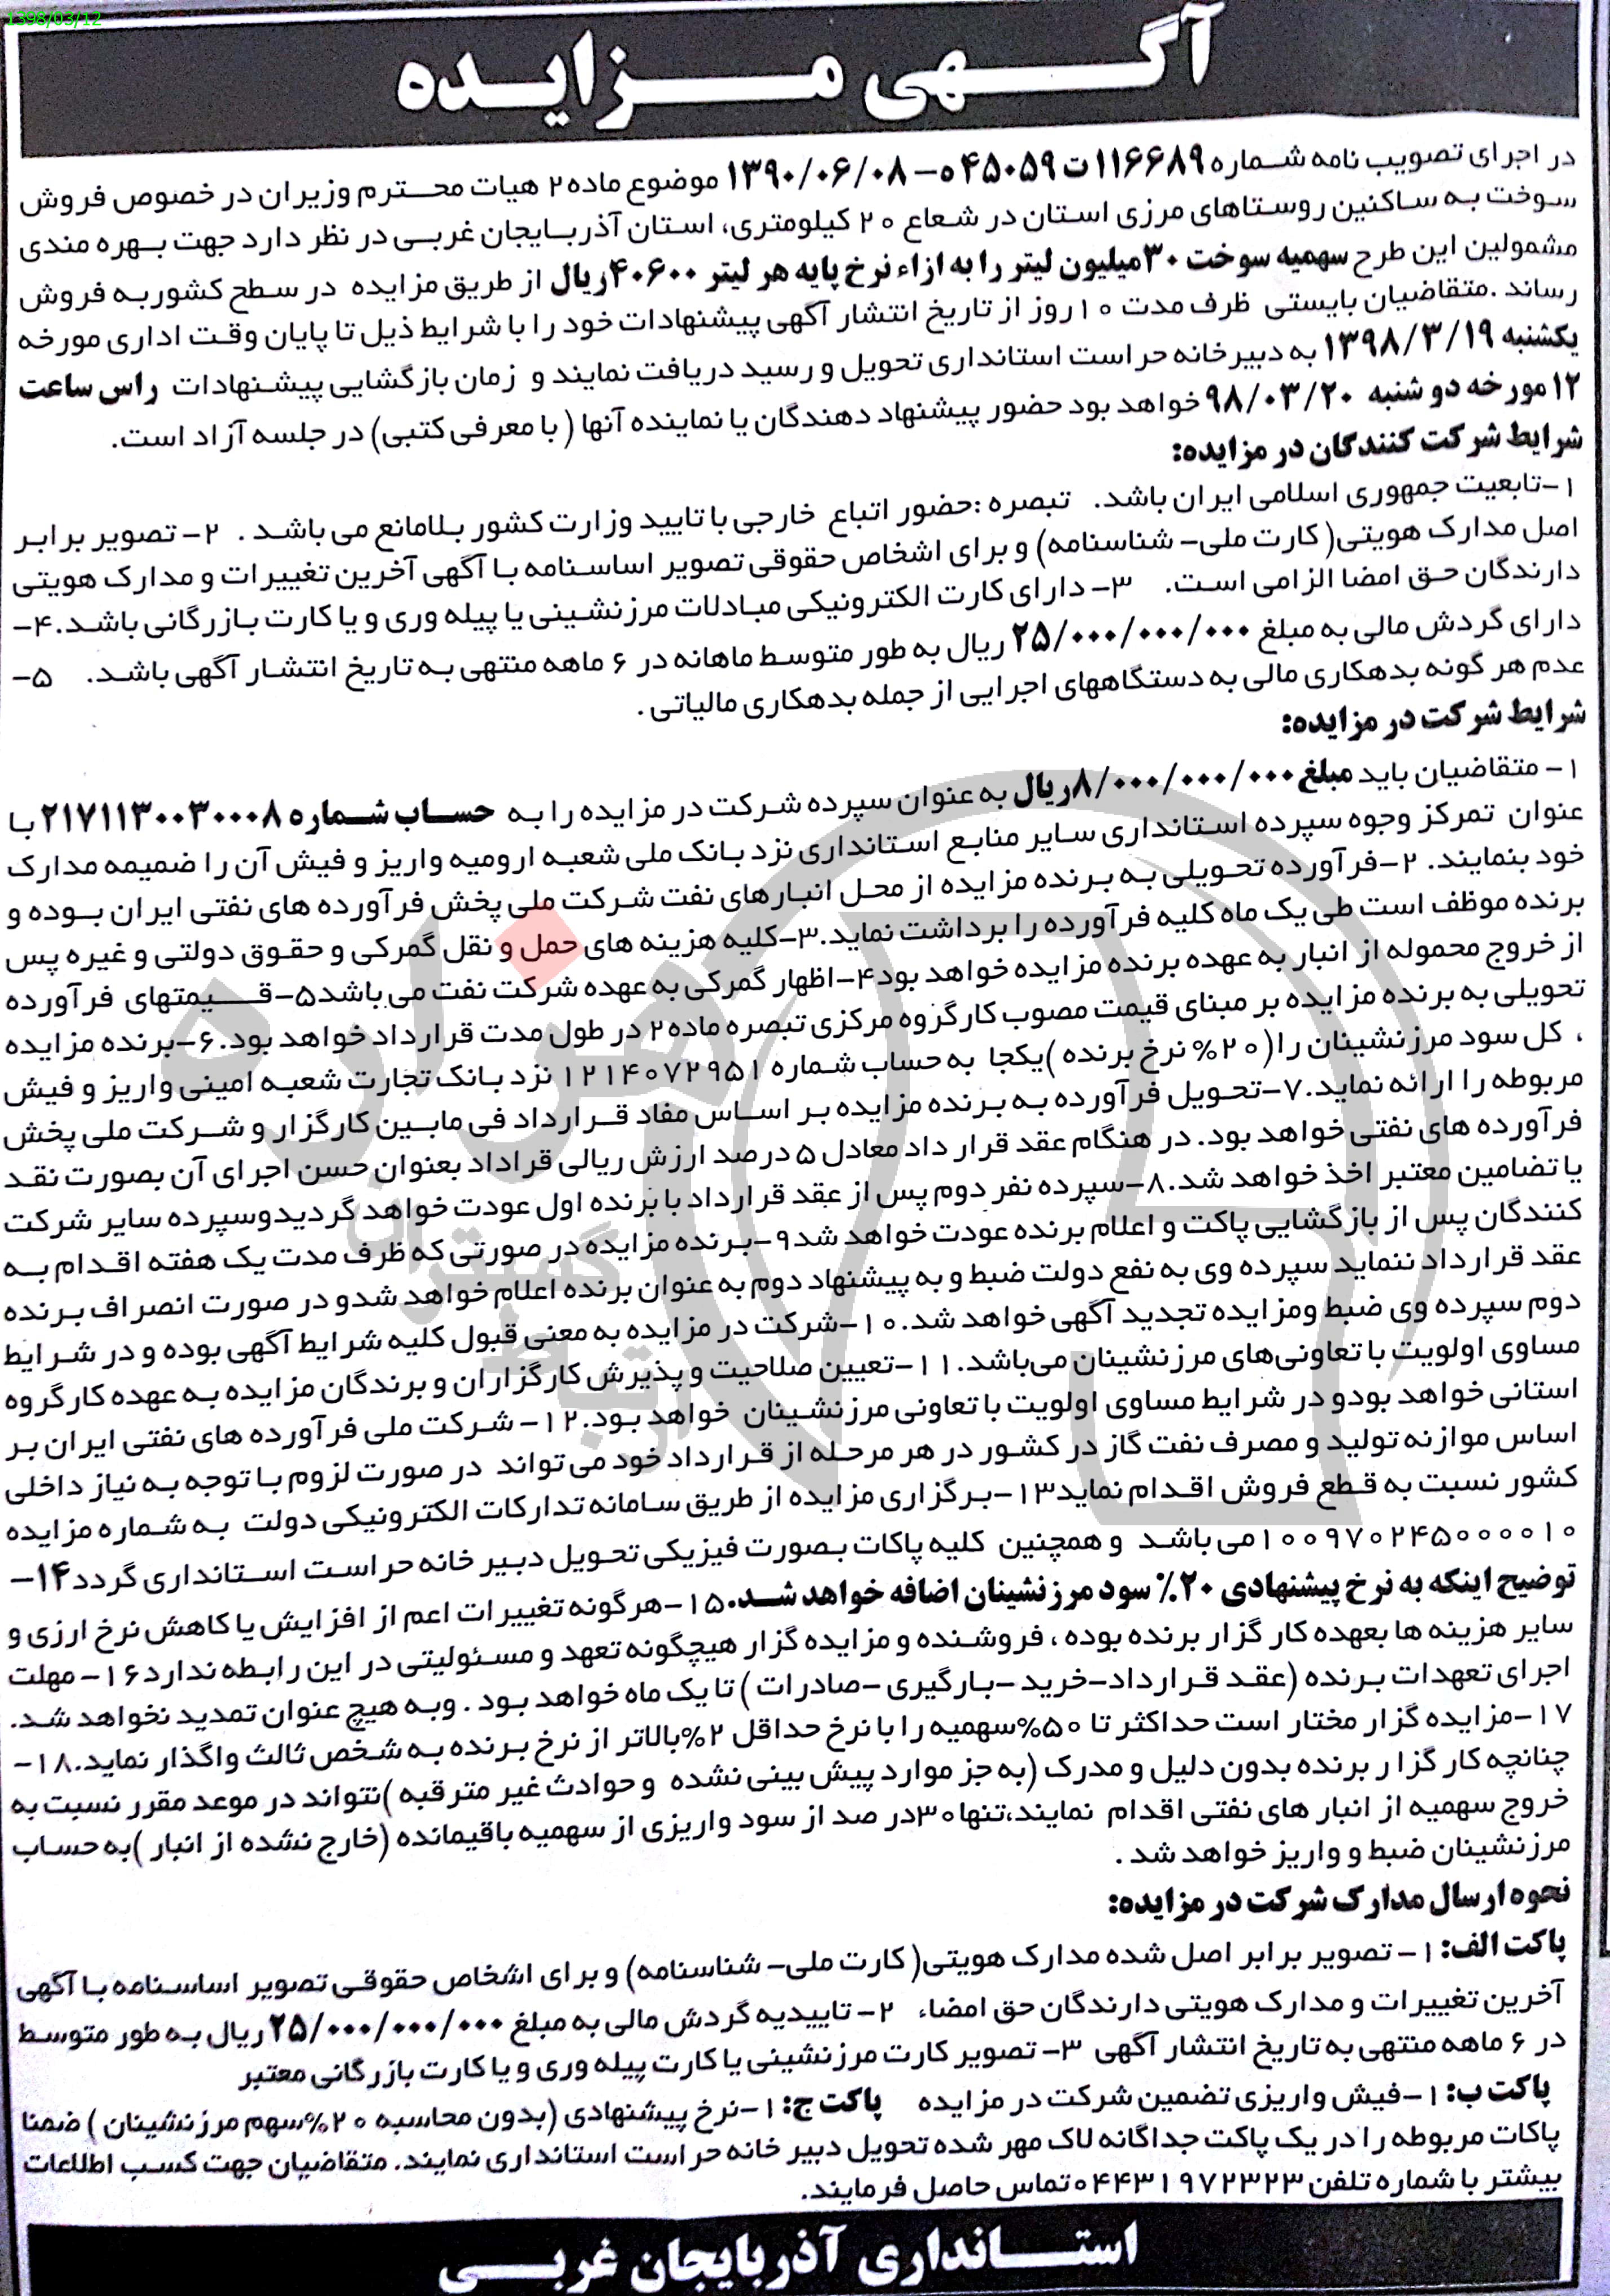 1398/03/12
آگهی مزایده
در اجرای تصویب نامه شماره ۱۱۶۶۸۹ت ۴۵۰۵۹ه- ۱۳۹۰/۰۶/۰۸ موضوع ماده ۲ هیات محترم وزیران در خصوص فروش
سوخت به ساکنین روستاهای مرزی استان در شعاع ۲۰ کیلومتری، استان آذربایجان غربی در نظر دارد جهت بهره مندی
مشمولین این طرح سهمیه سوخت ۳۰میلیون لیتر را به ازاء نرخ پایه هر لیتر ۴۰۶۰۰ریال از طریق مزایده در سطح کشور به فروش
رساند .متقاضیان بایستی ظرف مدت ۱۰ روز از تاریخ انتشار آگهی پیشنهادات خود را با شرایط ذیل تا پایان وقت اداری مورخه
یکشنبه ۱۳۹۸/۳/۱۹ به دبیرخانه حراست استانداری تحویل و رسید دریافت نمایند و زمان بازگشایی پیشنهادات راس ساعت
۱۲ مورخه دو شنبه ۹۸/۰۳/۲۰ خواهد بود حضور پیشنهاد دهندگان یا نماینده آنها ( با معرفی کتبی) در جلسه آزاد است.
شرایط شرکت کنندگان در مزایده:
۱-تابعیت جمهوری اسلامی ایران باشد. تبصره :حضور اتباع خارجی با تایید وزارت کشور بلامانع می باشد . ۲- تصویر برابر
اصل مدارک هویتی( کارت ملی- شناسنامه) و برای اشخاص حقوقی تصویر اساسنامه با آگهی آخرین تغییرات و مدارک هویتی
دارندگان حق امضا الزامی است. ۳- دارای کارت الکترونیکی مبادلات مرزنشینی یا پیله وری و یا کارت بازرگانی باشد.۴-
دارای گردش مالی به مبلغ ۲۵/۰۰۰/۰۰۰/۰۰۰ ریال به طور متوسط ماهانه در ۶ ماهه منتهی به تاریخ انتشار آگهی باشد. ۵-
عدم هر گونه بدهکاری مالی به دستگاههای اجرایی از جمله بدهکاری مالیاتی .
شرایط شرکت در مزایده:
۱- متقاضیان باید مبلغ ۸/۰۰۰/۰۰۰/۰۰۰ریال به عنوان سپرده شرکت در مزایده را به حساب شماره ۲۱۷۱۱۳۰۰۳۰۰۰۸ با
عنوان تمرکز وجوه سپرده استانداری سایر منابع استانداری نزد بانک ملی شعبه ارومیه واریز و فیش آن را ضمیمه مدارک
خود بنمایند. ۲-فرآورده تحویلی به برنده مزایده از محل انبارهای نفت شرکت ملی پخش فرآورده های نفتی ایران بوده و
برنده موظف است طی یک ماه کلیه فرآورده را برداشت نماید.۳-کلیه هزینه های حمل و نقل گمرکی و حقوق دولتی و غیره پس
از خروج محموله از انبار به عهده برنده مزایده خواهد بود۴-اظهار گمرکی به عهده شرکت نفت می باشد۵-قیمتهای فرآورده
تحویلی به برنده مزایده بر مبنای قیمت مصوب کارگروه مرکزی تبصره ماده ۲ در طول مدت قرارداد خواهد بود.۶-برنده مزایده
، کل سود مرزنشینان را(۲۰% نرخ برنده )یکجا به حساب شماره ۱۲۱۴۰۷۲۹۵۱ نزد بانک تجارت شعبه امینی واریز و فیش
مربوطه را ارائه نماید.۷-تحویل فرآورده به برنده مزایده بر اساس مفاد قرارداد فی مابین کارگزار و شرکت ملی پخش
فرآورده های نفتی خواهد بود. در هنگام عقد قرار داد معادل ۵ درصد ارزش ریالی قراداد بعنوان حسن اجرای آن بصورت نقد
یا تضامین معتبر اخذ خواهد شد.۸-سپرده نفر دوم پس از عقد قرارداد با برنده اول عودت خواهد گردیدوسپرده سایر شرکت
کنندگان پس از بازگشایی پاکت و اعلام برنده عودت خواهد شد۹-برنده مزایده در صورتی که ظرف مدت یک هفته اقدام به
عقد قرارداد ننماید سپرده وی به نفع دولت ضبط و به پیشنهاد دوم به عنوان برنده اعلام خواهد شدو در صورت انصراف برنده
دوم سپرده وی ضبط ومزایده تجدید آگهی خواهد شد.۱۰-شرکت در مزایده به معنی قبول کلیه شرایط آگهی بوده و در شرایط
مساوی اولویت با تعاونی‌های مرزنشینان می‌باشد.۱۱-تعیین صلاحیت و پذیرش کارگزاران و برندگان مزایده به عهده کارگروه
استانی خواهد بودو در شرایط مساوی اولویت با تعاونی مرزنشینان خواهد بود.۱۲- شرکت ملی فرآورده های نفتی ایران بر
اساس موازنه تولید و مصرف نفت گاز در کشور در هر مرحله از قرارداد خود می تواند در صورت لزوم با توجه به نیاز داخلی
کشور نسبت به قطع فروش اقدام نماید۱۳-برگزاری مزایده از طریق سامانه تدارکات الکترونیکی دولت به شماره مزایده
۱۰۰۹۷۰۲۴۵۰۰۰۰۱۰می باشد و همچنین کلیه پاکات بصورت فیزیکی تحویل دبیر خانه حراست استانداری گردد۱۴-
توضیح اینکه به نرخ پیشنهادی ۲۰٪ سود مرزنشینان اضافه خواهد شد.۱۵-هرگونه تغییرات اعم از افزایش یا کاهش نرخ ارزی و
سایر هزینه ها بعهده کار گزار برنده بوده ، فروشنده و مزایده گزار هیچگونه تعهد و مسئولیتی در این رابطه ندارد۱۶- مهلت
اجرای تعهدات برنده (عقد قرارداد-خرید -بارگیری -صادرات ) تا یک ماه خواهد بود . وبه هیچ عنوان تمدید نخواهد شد.
۱۷-مزایده گزار مختار است حداکثر تا ۵۰%سهمیه را با نرخ حداقل ۲%بالاتر از نرخ برنده به شخص ثالث واگذار نماید.۱۸-
چنانچه کار گزار برنده بدون دلیل و مدرک (به جز موارد پیش بینی نشده و حوادث غیر مترقبه )نتواند در موعد مقرر نسبت به
خروج سهمیه از انبار های نفتی اقدام نمایند،تنها ۳۰در صد از سود واریزی از سهمیه باقیمانده (خارج نشده از انبار )به حساب
مرزنشینان ضبط و واریز خواهد شد .
نحوه ارسال مدارک شرکت در مزایده:
پاکت الف: ۱- تصویر برابر اصل شده مدارک هویتی( کارت ملی- شناسنامه) و برای اشخاص حقوقی تصویر اساسنامه با آگهی
آخرین تغییرات و مدارک هویتی دارندگان حق امضاء، ۲- تاییدیه گردش مالی به مبلغ ۲۵/۰۰۰/۰۰۰/۰۰۰ ریال به طور متوسط
در ۶ ماهه منتهی به تاریخ انتشار آگهی ۳- تصویر کارت مرزنشینی یا کارت پیله وری و یا کارت بازرگانی معتبر
پاکت ب: ۱-فیش واریزی تضمین شرکت در مزایده پاکت ج: ۱-نرخ پیشنهادی (بدون محاسبه ۲۰%سهم مرزنشینان ) ضمنا
پاکات مربوطه را در یک پاکت جداگانه لاک مهر شده تحویل دبیر خانه حراست استانداری نمایند. متقاضیان جهت کسب اطلاعات
بیشتر با شماره تلفن ۰۴۴۳۱۹۷۲۳۲۳ تماس حاصل فرمایند.
استانداری آذربایجان غربی
هزاره
گستران
ارتباط